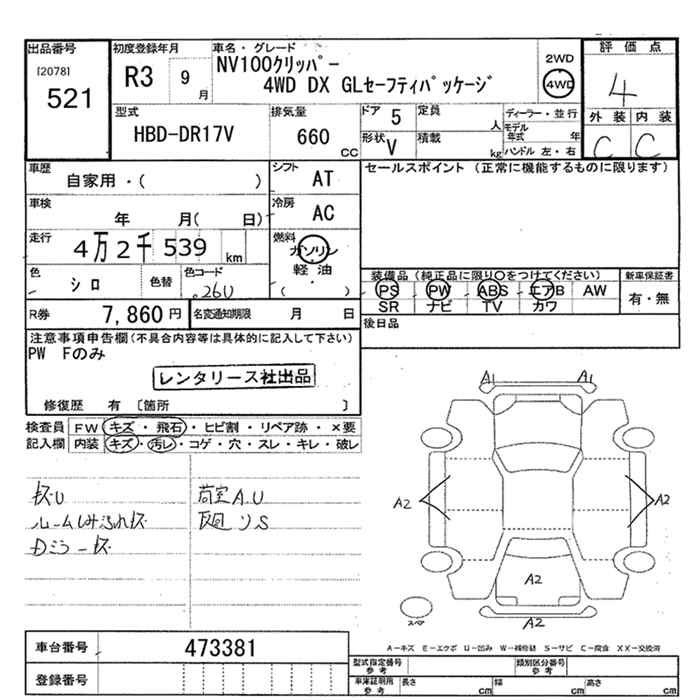 出品番号
[2078]
521
初度登録年月
R3 9月
車名・グレード
NV100クリッパー
4WD DX GLセーフティパッケージ
2WD
4WD
評価点
4
外装 内装
C C
型式
HBD-DR17V
排気量
660 CC
ドア 5
定員 人
形状 V
積載 kg
ディーラー・並行
モデル年式 年
ハンドル 左・右
車歴
自家用・( )
シフト AT
セールスポイント (正常に機能するものに限ります)
車検 年 月( 日)
冷房 AC
走行 4万2千539 km
燃料 ガソリン
軽油
( )
色 シロ 色替
色コード 26U
装備品 (純正品に限り○をつけてください)
PS PW ABS エアB AW
SR ナビ TV カワ
新車保証書
有・無
R券 7,860円
名変通知期限 月 日
後日品
注意事項申告欄(不具合内容等は具体的に記入して下さい)
PW Fのみ
レンタリース社出品
修復歴 有 〔箇所 〕
検査員記入欄
FW キズ・飛石・ヒビ割・リペア跡・×要
内装 キズ・汚レ・コゲ・穴・スレ・キレ・破レ
キズU
ルームしみ汚れキズ
Dミラーキズ
荷室A.U
A1 A1
A2 A2
A2
A2
スペア
A-キズ E-エクボ U-凹み W-補修跡 S-サビ C-腐食 XX-交換済
車台番号 473381
登録番号
型式指定番号 参考
類別区分番号 参考
車庫証明用 参考
長さ cm 幅 cm 高さ cm